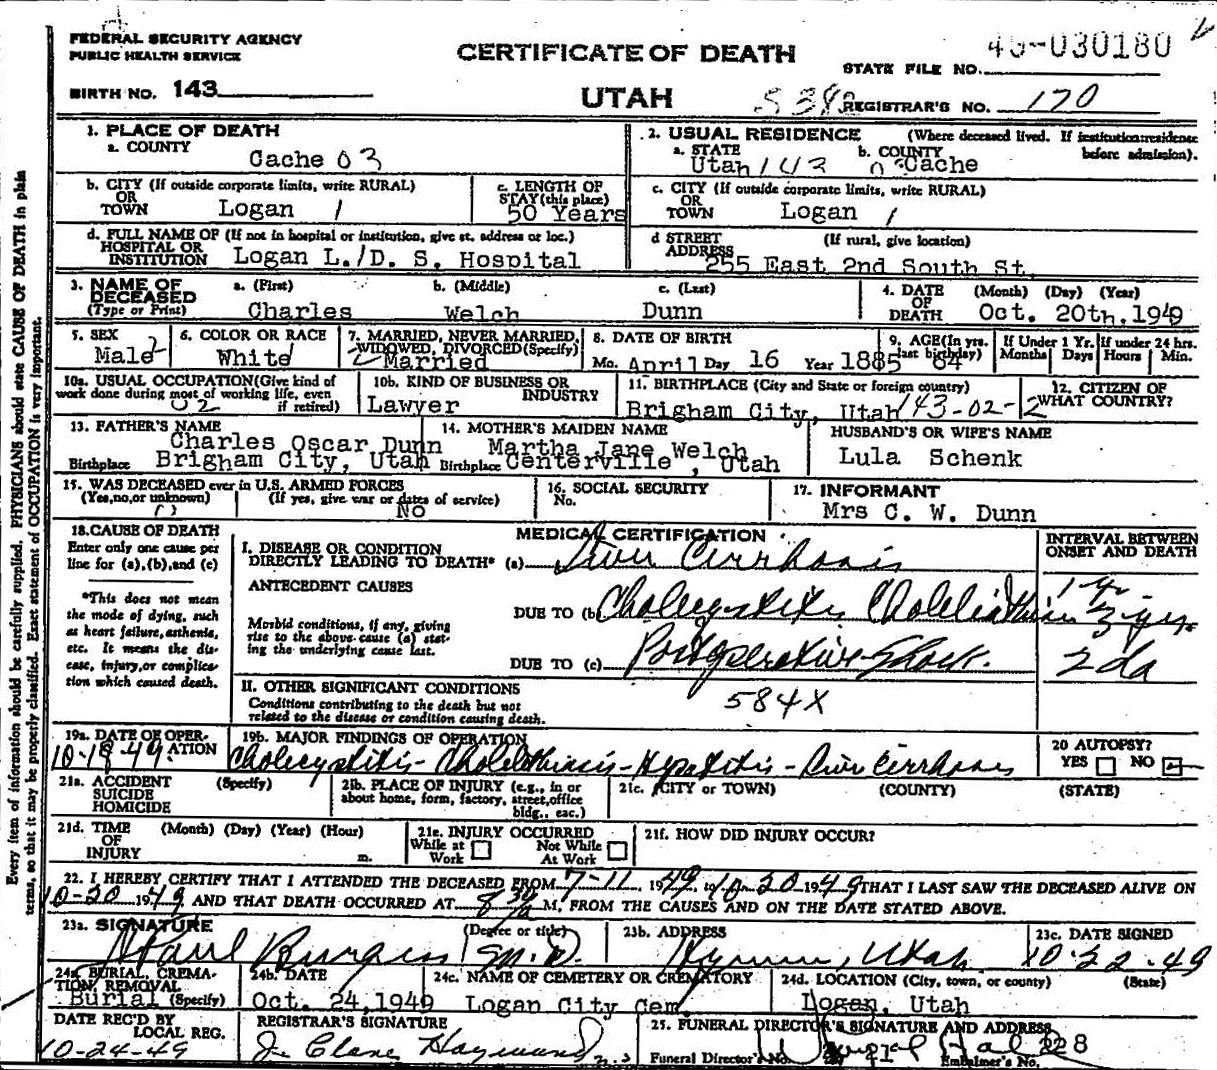 FEDERAL SECURITY AGENCY
PUBLIC HEALTH SERVICE
CERTIFICATE OF DEATH
49-030180
STATE FILE NO.
BIRTH NO. 143
UTAH
REGISTRAR'S NO. 170
1. PLACE OF DEATH
a. COUNTY
Cache 03
2. USUAL RESIDENCE (Where deceased lived. If institution: residence before admission).
a. STATE
Utah 143
b. COUNTY
03 Cache
b. CITY (If outside corporate limits, write RURAL)
OR
TOWN Logan 1
c. LENGTH OF
STAY (this place)
50 Years
c. CITY (If outside corporate limits, write RURAL)
OR
TOWN Logan 1
d. FULL NAME OF (If not in hospital or institution, give st. address or loc.)
HOSPITAL OR
INSTITUTION Logan L. D. S. Hospital
d STREET (If rural, give location)
ADDRESS
255 East 2nd South St.
3. NAME OF DECEASED
(Type or Print)
a. (First) b. (Middle) c. (Last)
Charles Welch Dunn
4. DATE OF DEATH (Month) (Day) (Year)
Oct. 20th, 1949
5. SEX
Male
6. COLOR OR RACE
White
7. MARRIED, NEVER MARRIED,
WIDOWED, DIVORCED (Specify)
Married
8. DATE OF BIRTH
Mo. April Day 16 Year 1885
9. AGE (In yrs. last birthday)
64
If Under 1 Yr. Months Days
If under 24 hrs. Hours Min.
10a. USUAL OCCUPATION (Give kind of work done during most of working life, even if retired)
02
10b. KIND OF BUSINESS OR INDUSTRY
Lawyer
11. BIRTHPLACE (City and State or foreign country)
Brigham City, Utah 143-02-2
12. CITIZEN OF WHAT COUNTRY?
13. FATHER'S NAME
Charles Oscar Dunn
Birthplace Brigham City, Utah
14. MOTHER'S MAIDEN NAME
Martha Jane Welch
Birthplace Centerville, Utah
HUSBAND'S OR WIFE'S NAME
Lula Schenk
15. WAS DECEASED ever in U.S. ARMED FORCES
(Yes, no, or unknown) (If yes, give war or dates of service)
0 No
16. SOCIAL SECURITY
No.
17. INFORMANT
Mrs C. W. Dunn
18. CAUSE OF DEATH
Enter only one cause per line for (a), (b), and (c)
*This does not mean the mode of dying, such as heart failure, asthenia, etc. It means the disease, injury, or complication which caused death.
MEDICAL CERTIFICATION
I. DISEASE OR CONDITION
DIRECTLY LEADING TO DEATH* (a) Liver Cirrhosis
INTERVAL BETWEEN ONSET AND DEATH
1 yr
ANTECEDENT CAUSES
Morbid conditions, if any, giving rise to the above cause (a) stating the underlying cause last.
DUE TO (b) Cholecystitis, Cholelithiasis 3 yrs.
DUE TO (c) Postoperative Shock. 2 da
II. OTHER SIGNIFICANT CONDITIONS
Conditions contributing to the death but not related to the disease or condition causing death.
584X
19a. DATE OF OPERATION
10-18-49
19b. MAJOR FINDINGS OF OPERATION
Cholecystitis - Cholelithiasis - Hepatitis - Liver Cirrhosis
20 AUTOPSY?
YES NO
21a. ACCIDENT SUICIDE HOMICIDE (Specify)
21b. PLACE OF INJURY (e.g., in or about home, form, factory, street, office bldg., eac.)
21c. (CITY or TOWN) (COUNTY) (STATE)
21d. TIME OF INJURY (Month) (Day) (Year) (Hour) m.
21e. INJURY OCCURRED
While at Work Not While At Work
21f. HOW DID INJURY OCCUR?
22. I HEREBY CERTIFY THAT I ATTENDED THE DECEASED FROM 7-11 1949, to 10-20 1949 THAT I LAST SAW THE DECEASED ALIVE ON
10-20 1949 AND THAT DEATH OCCURRED AT 8 30 a M, FROM THE CAUSES AND ON THE DATE STATED ABOVE.
23a. SIGNATURE (Degree or title)
Paul Burgess M.D.
23b. ADDRESS
Hyrum, Utah
23c. DATE SIGNED
10-22-49
24a BURIAL, CREMATION, REMOVAL
Burial (Specify)
24b. DATE
Oct. 24, 1949
24c. NAME OF CEMETERY OR CREMATORY
Logan City Cem.
24d. LOCATION (City, town, or county) (State)
Logan, Utah
DATE REC'D BY LOCAL REG.
10-24-49
REGISTRAR'S SIGNATURE
25. FUNERAL DIRECTOR'S SIGNATURE AND ADDRESS
Funeral Director's No.
Embalmer's No. 228
Every item of information should be carefully supplied. PHYSICIANS should state CAUSE OF DEATH in plain
terms, so that it may be properly classified. Exact statement of OCCUPATION is very important.